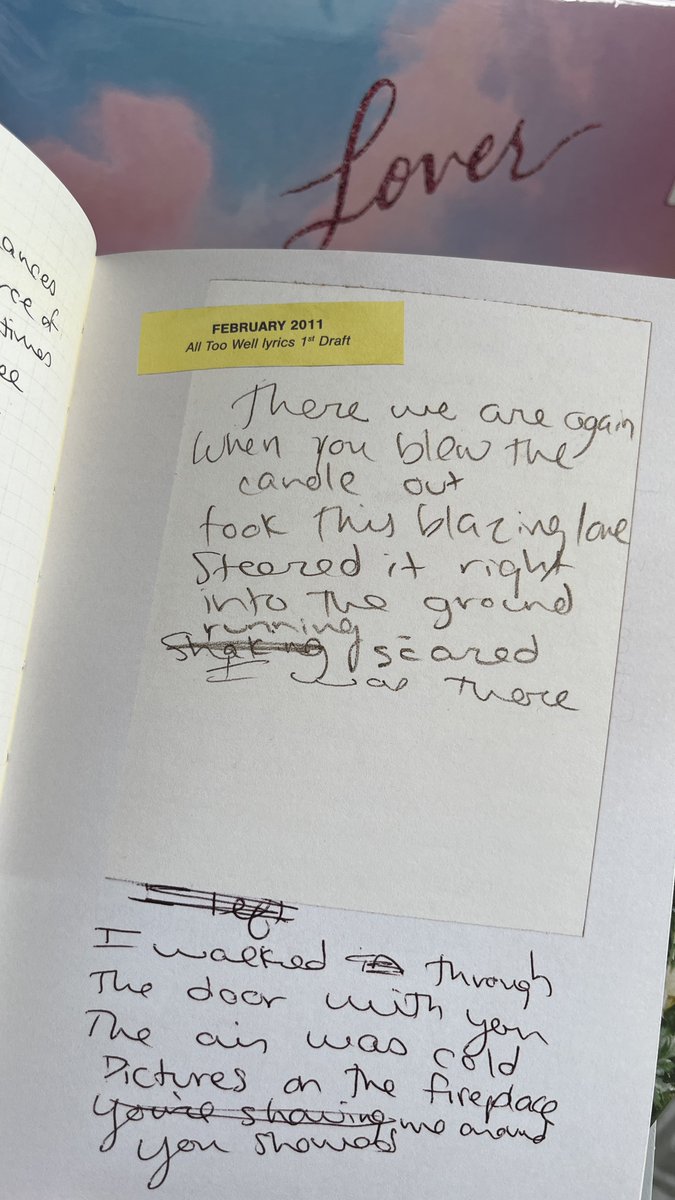 Lover
ances
rce of
times
ee
FEBRUARY 2011
All Too Well lyrics 1st Draft
There we are again
When you blew the
candle out
took this blazing love
Steered it right
into the ground
running
Shaking scared
I was there
I left
I walked in through
The door with you
The air was cold
Pictures on the fireplace
You're showing me around
you showed